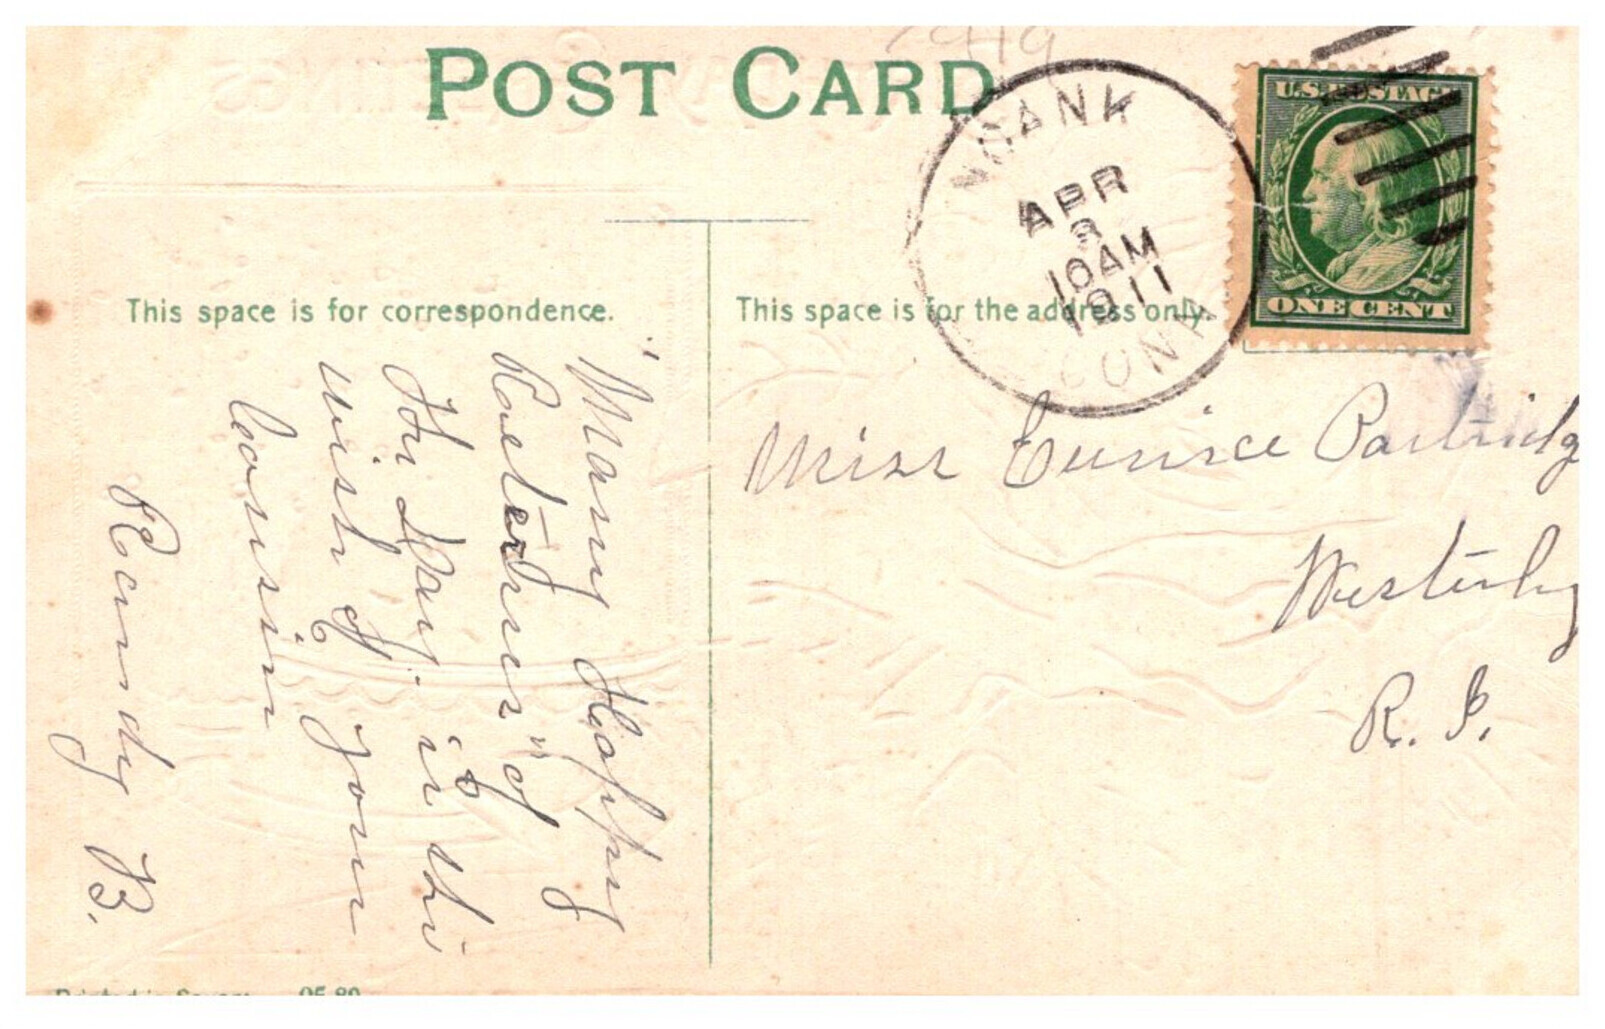 POST CARD
NOANK
APR
3
10AM
1911
CONN
U.S. POSTAGE
ONE CENT
This space is for correspondence.
This space is for the address only.
"Many Happy
Returns" of
the Day. is the
wish of your
cousin
Randy B.
Miss Eunice Partridg
Westerly
R. I.
Printed in Saxony